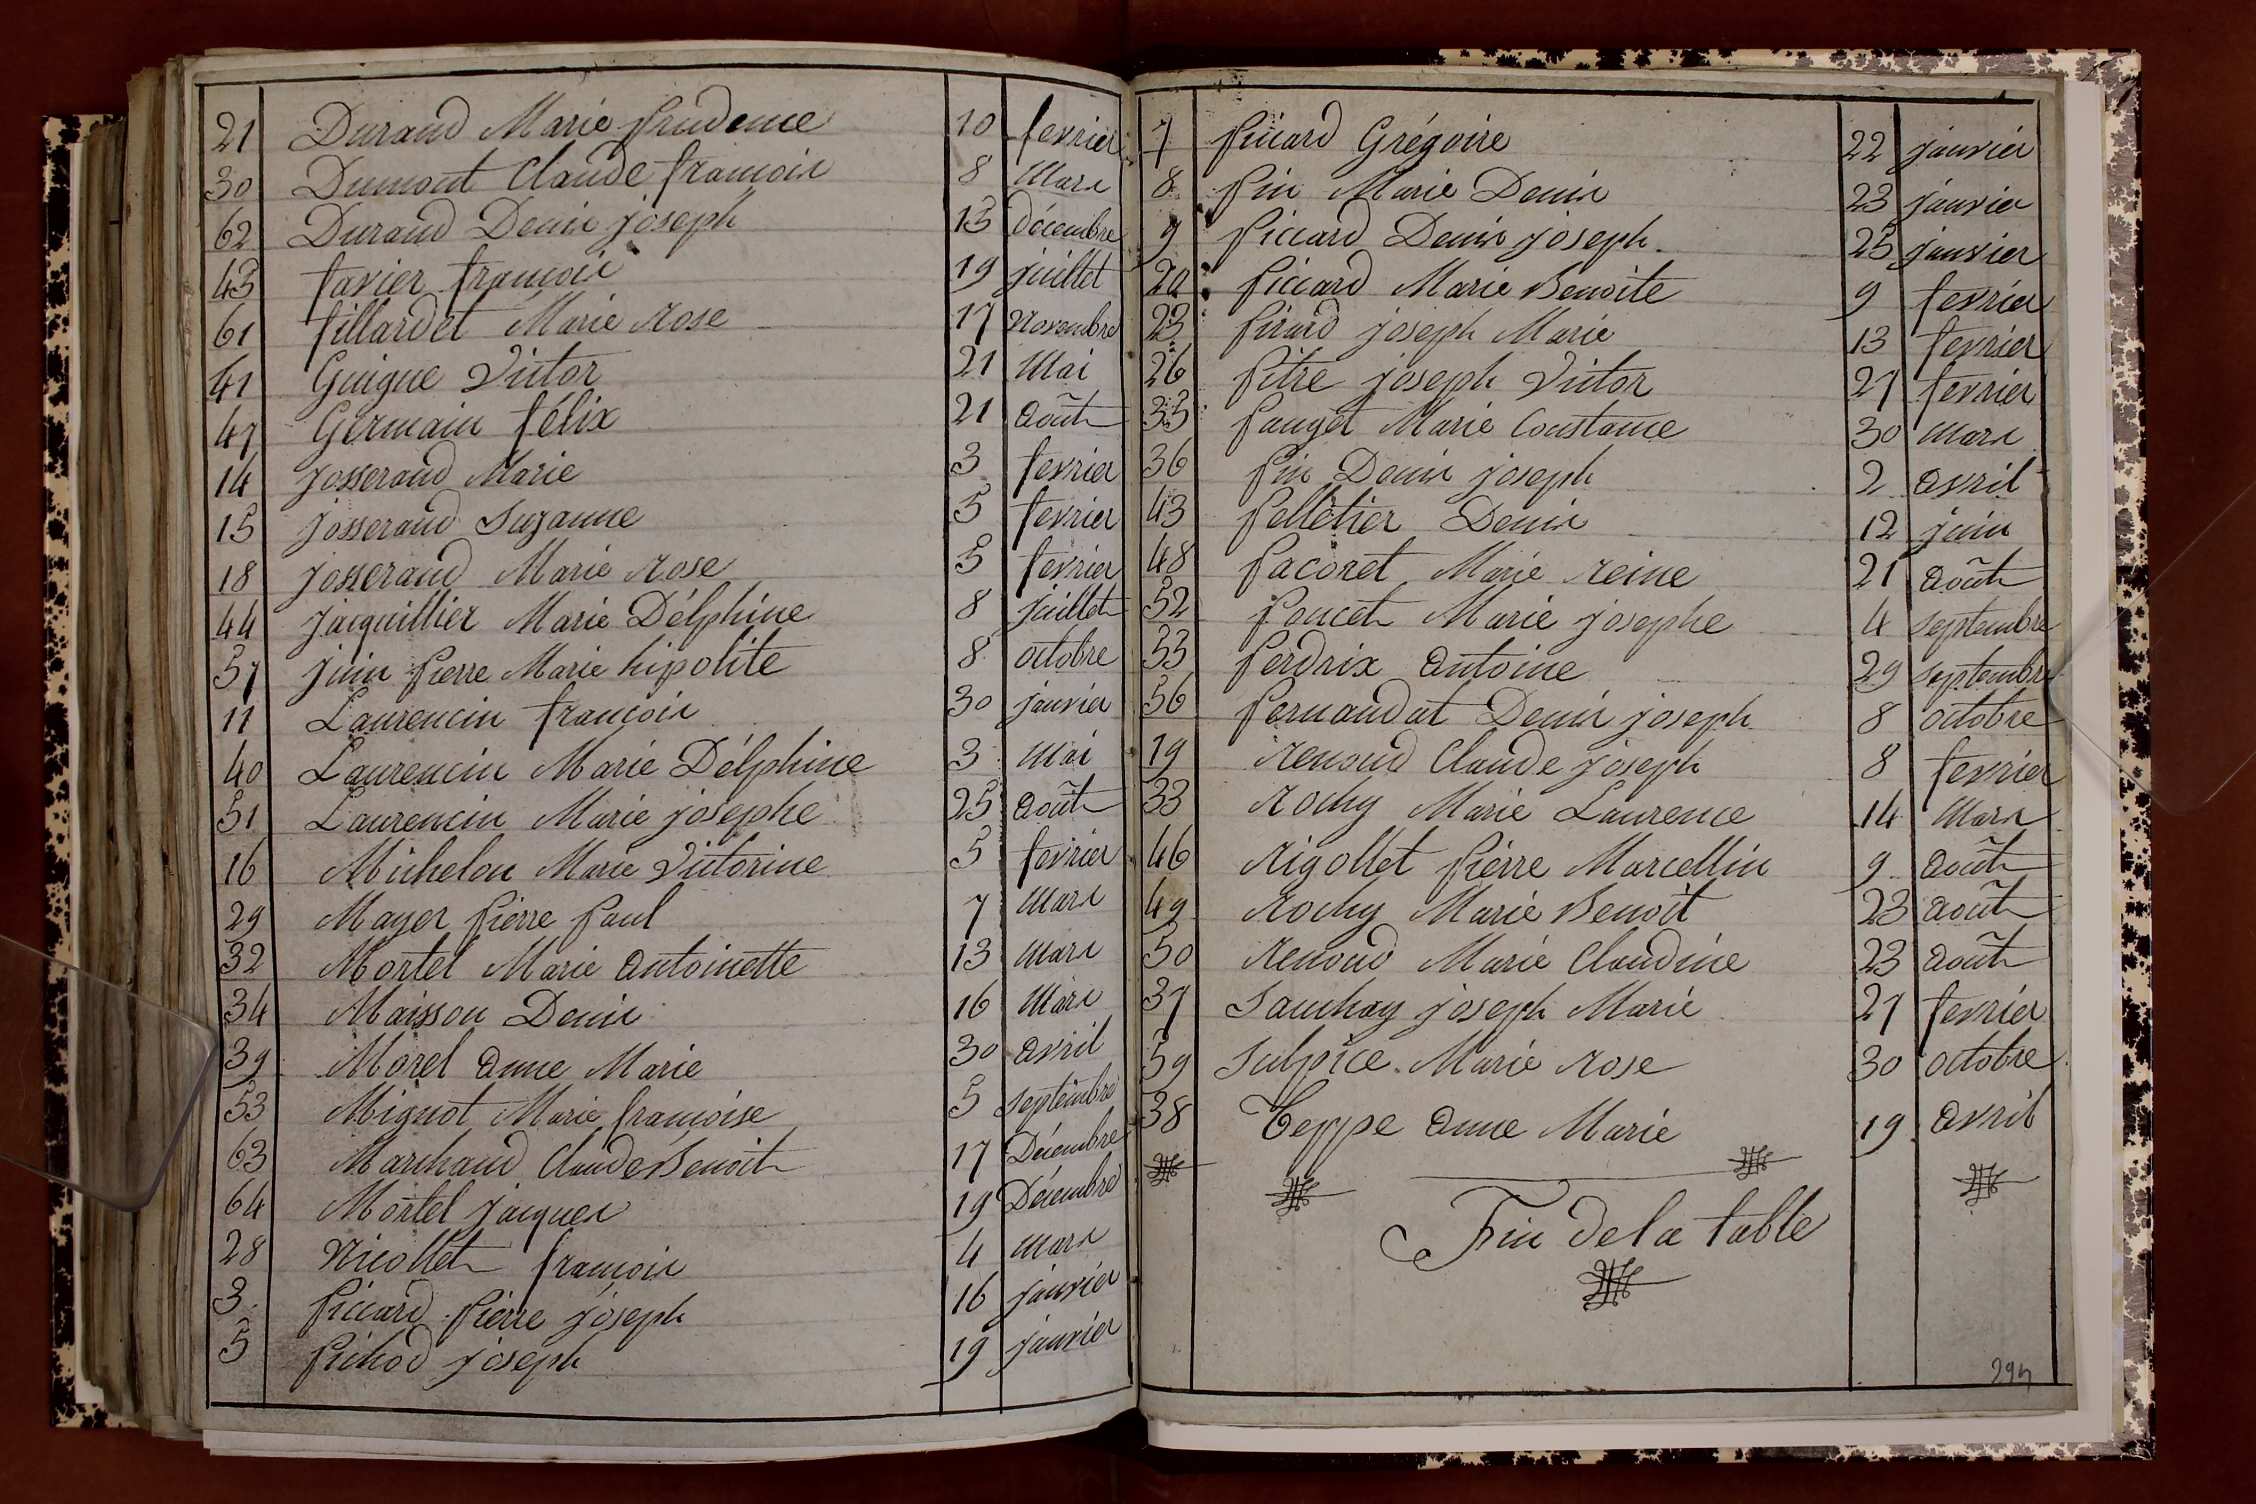 21 Durand Marie Prudence 10 fevrier
30 Dumont Claude francois 8 Mars
62 Durand Denis joseph 13 Décembre
43 favier francois 19 juillet
61 fillardet Marie rose 17 Novembre
41 Guigue Victor 21 Mai
47 Germain félix 21 Août
14 josserand Marie 3 fevrier
15 josserand Suzanne 5 fevrier
18 josserand Marie rose 5 fevrier
44 jacquillier Marie Délphine 8 juillet
57 juin Pierre Marie hipolite 8 octobre
11 Laurencin francois 30 janvier
40 Laurencin Marie Délphine 3 Mai
51 Laurencin Marie josephe 25 Août
16 Michelon Marie Victorine 5 fevrier
29 Mayer Pierre Paul 7 Mars
32 Mortel Marie Antoinette 13 Mars
34 Maisson Denis 16 Mars
39 Morel Anne Marie 30 Avril
53 Mignot Marie francoise 5 Septembre
63 Marchand Claude Benoit 17 Décembre
64 Mortel jacques 19 Décembre
28 Nicollet francois 4 Mars
3 Piccard Pierre joseph 16 janvier
5 Pichod joseph 19 janvier
7 Piccard Grégoire 22 janvier
8 Pin Marie Denis 23 janvier
9 Piccard Denis joseph 25 janvier
20 Piccard Marie Benoite 9 fevrier
23 Picard joseph Marie 13 fevrier
26 Pitre joseph Victor 27 fevrier
35 Pauget Marie Constance 30 Mars
36 Pin Denis joseph 2 Avril
43 Pelletier Denis 12 juin
48 Pacoret Marie reine 21 Août
52 Poncet Marie josephe 4 Septembre
55 Perdrix Antoine 29 Septembre
56 Pernandat Denis joseph 8 octobre
19 Renoud Claude joseph 8 fevrier
33 Rochy Marie Laurence 14 Mars
46 Rigollet Pierre Marcellin 9 Août
49 Rochy Marie Benoît 23 Août
50 Renoud Marie Claudine 23 Août
37 Sauchay joseph Marie 27 fevrier
59 Sulpice Marie rose 30 octobre
38 Teppe Anne Marie 19 Avril
Fin de la table